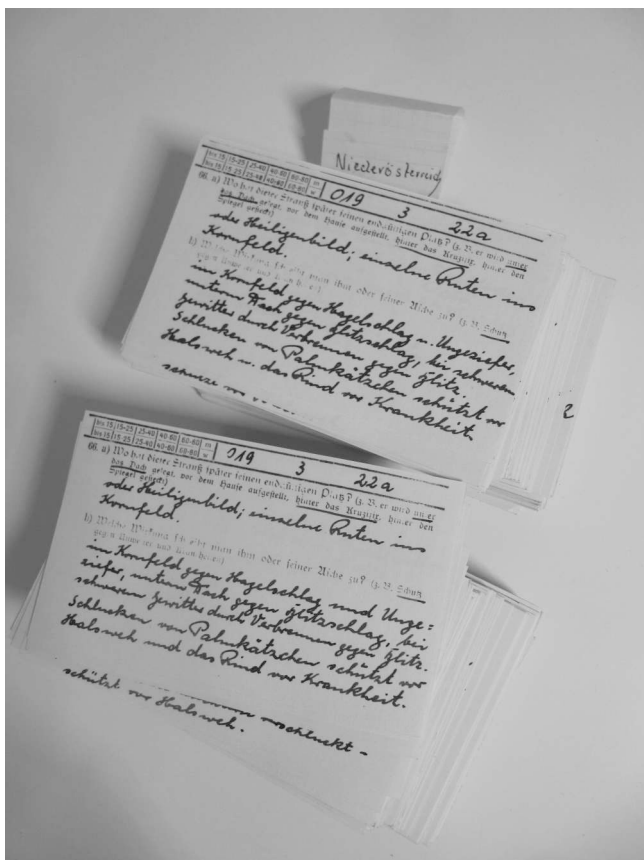 Niederösterreich
bis 15 15-25 25-40 40-60 60-80 m
bis 15 15-25 25-40 40-60 60-80 w
019 3 22a
66. a) Wo hat dieser Strauß später seinen endgültigen Platz? (z. B. er wird unter
das Dach gelegt, vor dem Hause aufgestellt, hinter das Kruzifix, hinter den
Spiegel gesteckt)
oder Heiligenbild; einzelne Ruten ins
Kornfeld.
b) Welche Wirkung schreibt man ihm oder seiner Asche zu? (z. B. Schutz
gegen
im Kornfeld gegen Hagelschlag u. Ungeziefer,
unterm Dach gegen Blitzschlag, bei schwerem
Gewitter durch Verbrennen gegen Blitz.
Schlucken von Palmkätzchen schützt vor
Halsweh u. das Rind vor Krankheit.
2
bis 15 15-25 25-40 40-60 60-80 m
bis 15 15-25 25-40 40-60 60-80 w
019 3 22a
66. a) Wo hat dieser Strauß später seinen endgültigen Platz? (z. B. er wird unter
das Dach gelegt, vor dem Hause aufgestellt, hinter das Kruzifix, hinter den
Spiegel gesteckt)
oder Heiligenbild; einzelne Ruten ins
Kornfeld.
b) Welche Wirkung schreibt man ihm oder seiner Asche zu? (z. B. Schutz
gegen
im Kornfeld gegen Hagelschlag und Unge=
ziefer, unterm Dach gegen Blitzschlag, bei
schwerem Gewitter durch Verbrennen gegen Blitz.
Schlucken von Palmkätzchen schützt vor
Halsweh und das Rind vor Krankheit.
schützt vor Halsweh.